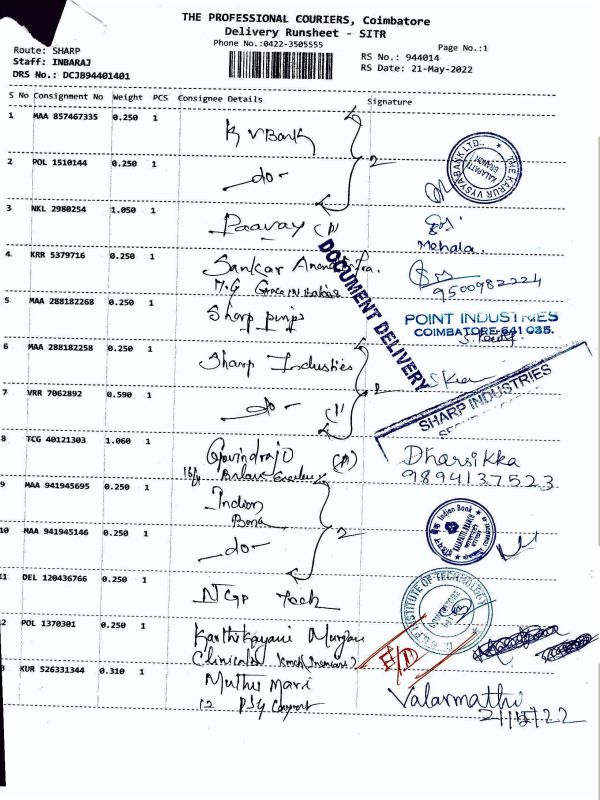 THE PROFESSIONAL COURIERS, Coimbatore
Delivery Runsheet - SITR
Phone No.:0422-3505555
Page No.:1
Route: SHARP
RS No.: 944014
Staff: INBARAJ
RS Date: 21-May-2022
DRS No.: DCJB94401401
S No Consignment No Weight PCS Consignee Details Signature
1 MAA 857467335 0.250 1 K V Bank
THE KARUR VYSYA BANK LTD., KALAPATTI BRANCH
2 POL 1510144 0.250 1 -do- 2
3 NKL 2980254 1.050 1 Paavay (P)
Mehala.
4 KRR 5379716 0.250 1 Sankar
M.G
9500982224
DOCUMENT DELIVERY
5 MAA 288182268 0.250 1 Sharp pumps
POINT INDUSTRIES
COIMBATORE-641 035.
6 MAA 288182258 0.250 1 Sharp Industies
7 VRR 7062892 0.590 1 -do-
SHARP INDUSTRIES
8 TCG 40121303 1.060 1 Govindraj
Dharsikka
9894137523
9 MAA 941945695 0.250 1 Indian
Bank
Indian Bank
10 MAA 941945146 0.250 1 -do- 2
11 DEL 120436766 0.250 1 NGP Tech
INSTITUTE OF TECHNOLOGY
2 POL 1370301 0.250 1 Karthikayani Murgan
E/D
KUR 526331344 0.310 1 Muthu Mari
12 PSG
Valarmathi